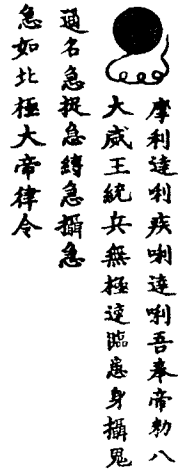 摩利達唎疾唎達唎吾奉帝勅八
大威王統兵無極速臨患身攝鬼
通名急捉急縛急攝急
急如北極大帝律令